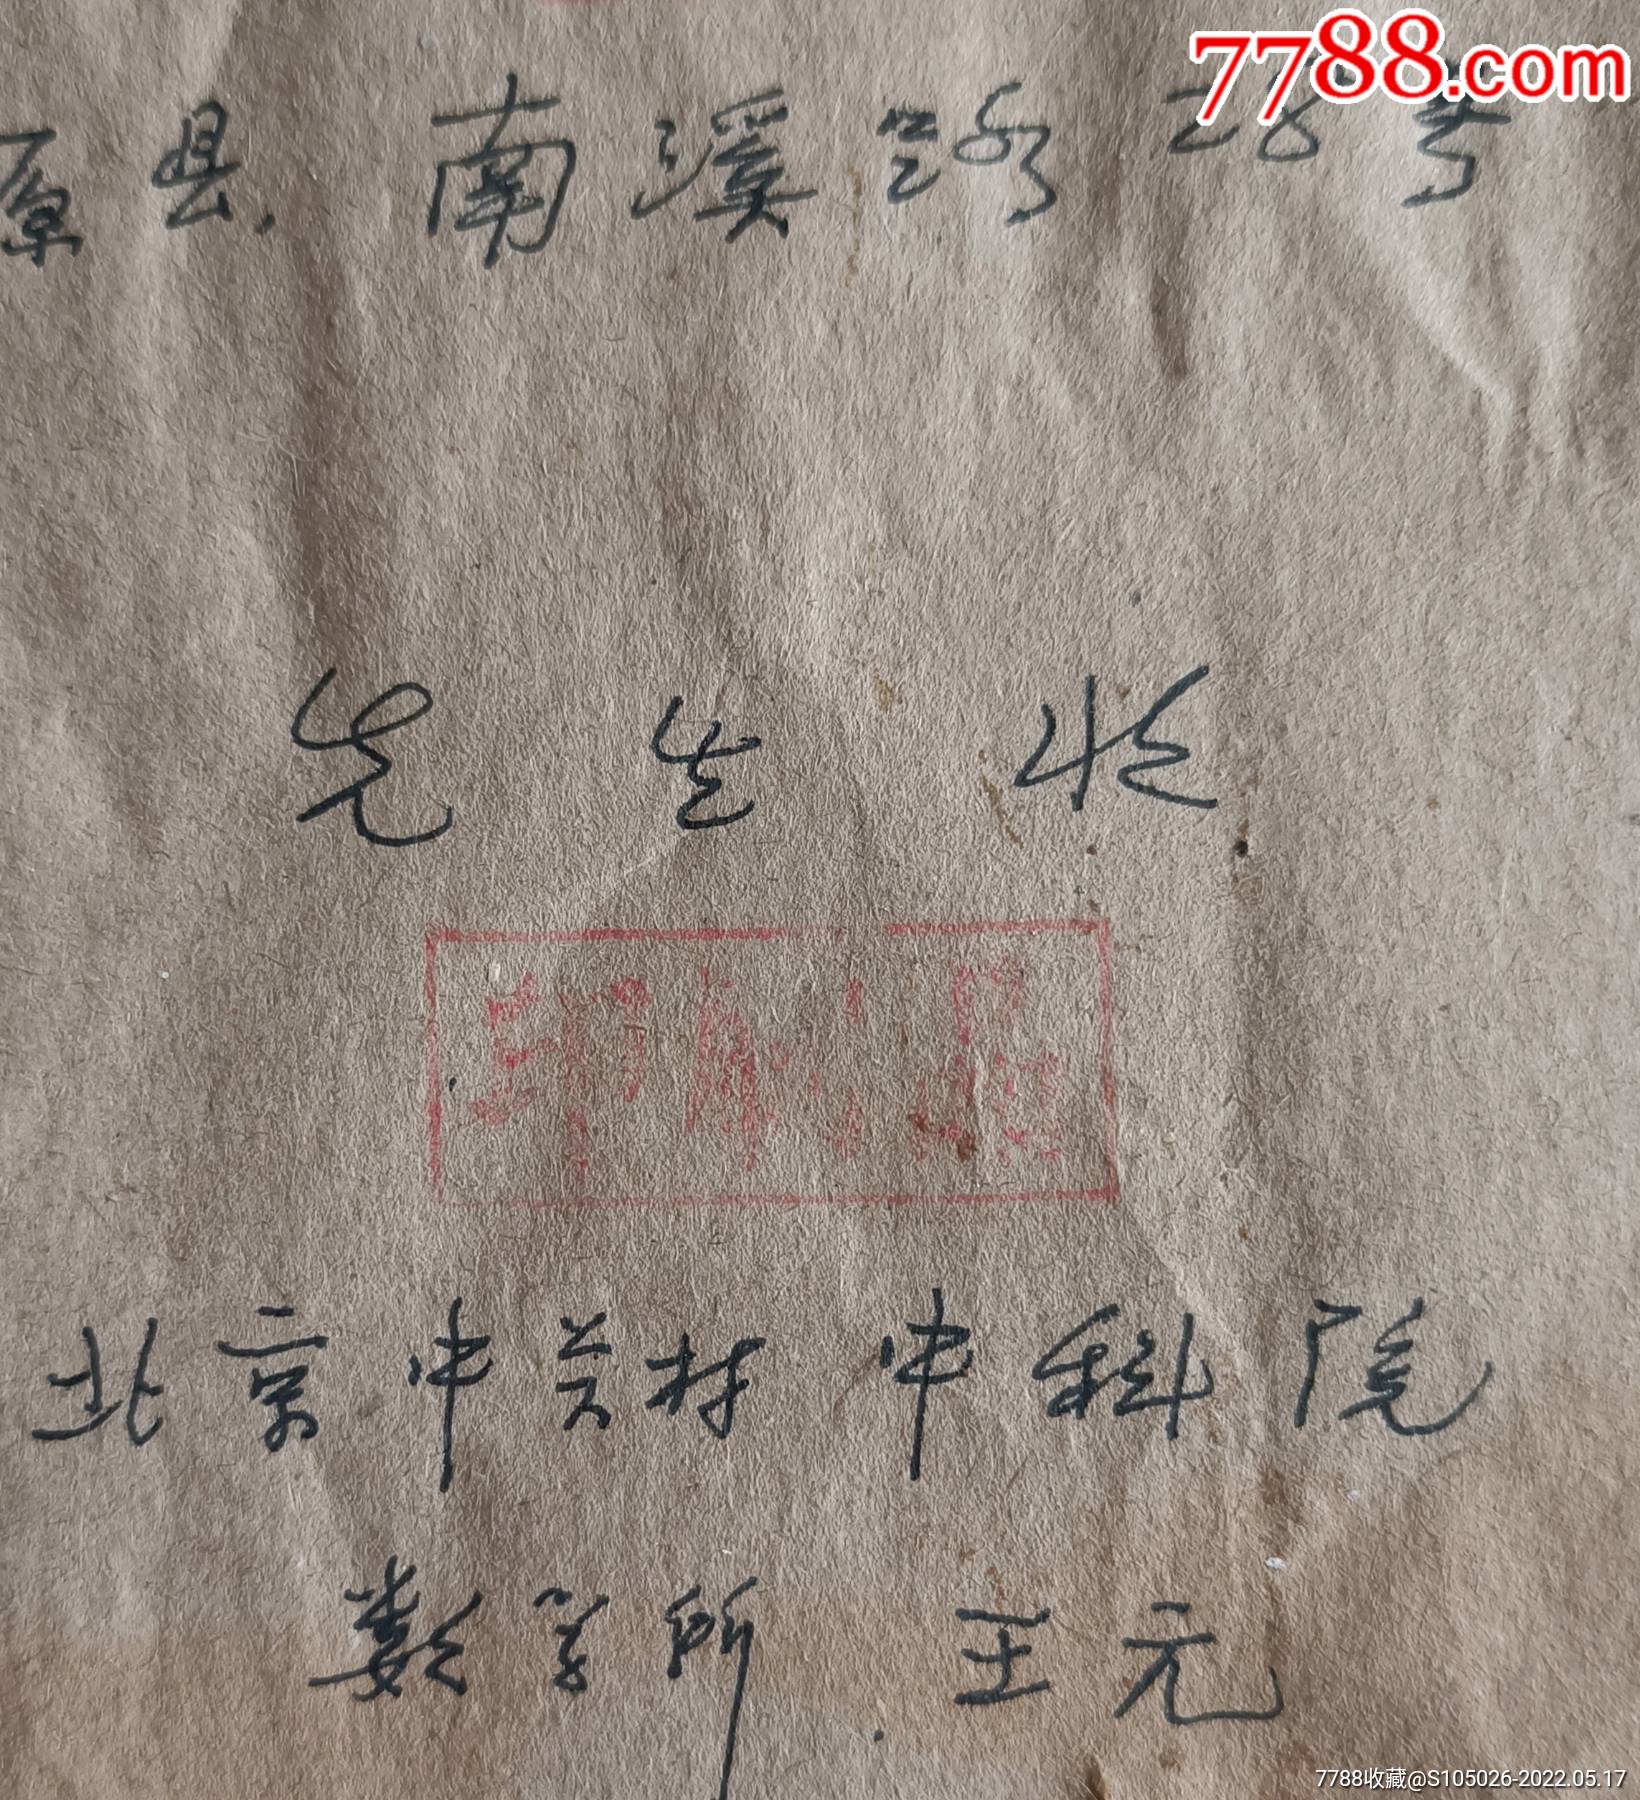 7788.com
原县, 南溪路 28号
先生收
印刷品
北京中关村 中科院
数学所 王元
7788收藏@S105026-2022.05.17